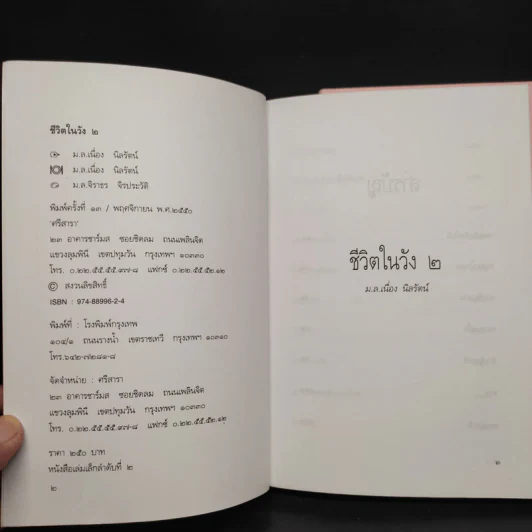 ชีวิตในวัง ๒
ม.ล.เนื่อง นิลรัตน์
ม.ล.เนื่อง นิลรัตน์
ม.ล.จิราธร จิรประวัติ
พิมพ์ครั้งที่ ๑๓ / พฤศจิกายน พ.ศ.๒๕๕๐
"ศรีสารา"
๒๓ อาคารชาร์มส ซอยชิดลม ถนนเพลินจิต
แขวงลุมพินี เขตปทุมวัน กรุงเทพฯ ๑๐๓๓๐
โทร. ๐.๒๒.๕๕.๕๕.๙๗-๘ แฟกซ์ ๐.๒๒.๕๕.๕๒.๑๒
© สงวนลิขสิทธิ์
ISBN : 974-88996-2-4
พิมพ์ที่ : โรงพิมพ์กรุงเทพ
๑๐๔/๑ ถนนรางน้ำ เขตราชเทวี กรุงเทพฯ ๑๐๓๑๐
โทร.๖๔๒-๗๒๘๑-๘
จัดจำหน่าย : ศรีสารา
๒๓ อาคารชาร์มส ซอยชิดลม ถนนเพลินจิต
แขวงลุมพินี เขตปทุมวัน กรุงเทพฯ ๑๐๓๓๐
โทร. ๐.๒๒.๕๕.๕๕.๙๗-๘ แฟกซ์ ๐.๒๒.๕๕.๕๒.๑๒
ราคา ๒๕๐ บาท
หนังสือเล่มเล็กลำดับที่ ๒
๒
ชีวิตในวัง ๒
ม.ล.เนื่อง นิลรัตน์